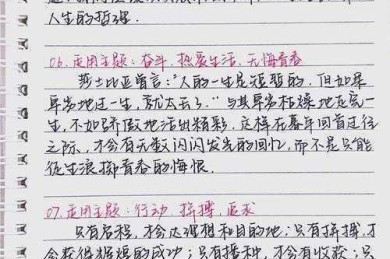 人生的哲理。
06.适用主题：奋斗、热爱生活、无悔青春
莎士比亚曾言："人的一生是短暂的，但如果
卑劣地过一生，就太长了。"与其卑劣枯燥地走完一
生，不如骄傲地活出精彩，这样在暮年回首过往
之际，才会有无数闪闪发光的回忆，而不是只能
徒生浪掷青春的悔恨。
07.适用主题：行动、拼搏、追求
只有启程，才会达到理想和目的地；只有拼搏，才
会获得辉煌的成功；只有播种，才会有收获；只